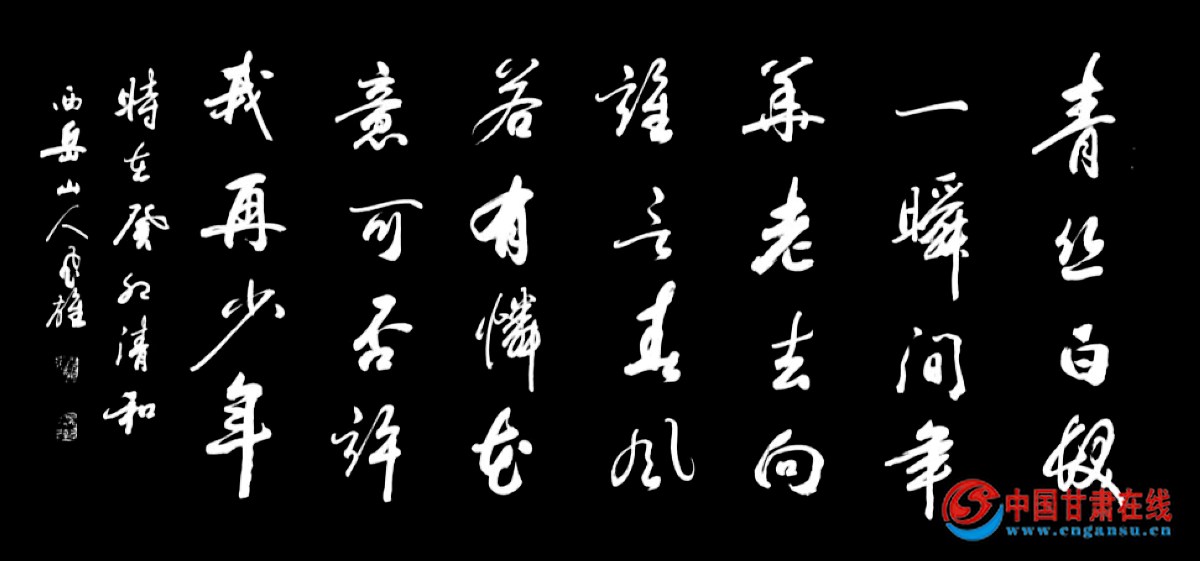 青丝白髮
一瞬间年
華老去向
誰言春风
若有憐花
意可否許
我再少年
時在癸卯清和
西岳山人雄
中国甘肃在线
www.cngansu.cn